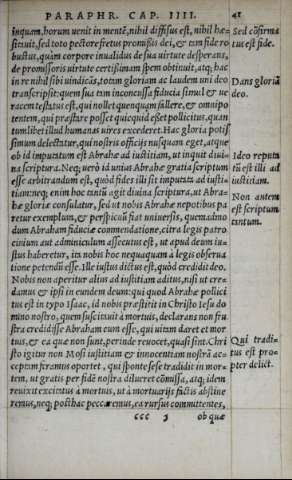 PARAPHR. CAP. IIII. 41
inquam, horum uenit in mentē, nihil diffisus est, nihil hæ-
sitauit, sed toto pectore fretus promissis dei, & tam fide ro
bustus, quàm corpore inualidus de sua uirtute desperans,
de promissoris uirtute certissimam spem obtinuit, atq; hac
in re nihil sibi uindicās, totam gloriam ac laudem uni deo
transcripsit: quem sua tam inconcussa fiducia simul & ue
racem testatus est, qui nollet quenquam fallere, & omnipo
tentem, qui præstare posset quicquid esset pollicitus, quan
tumlibet illud humanas uires excederet. Hac gloria potis
simum delectatur, qui nostris officijs nusquam eget, atque
ob id imputatum est Abrahæ ad iustitiam, ut inquit diui-
na scriptura. Neq; uerò id unius Abrahæ gratia scriptum
esse arbitrandum est, quòd fides illi sit imputata ad iusti-
tiam: neq; enim hoc tantū agit diuina scriptura, ut Abra-
hæ gloriæ consulatur, sed ut nobis Abrahæ nepotibus pa
retur exemplum, & perspicuū fiat uniuersis, quemadmo
dum Abraham fiduciæ commendatione, citra legis patro
cinium aut adminiculum assecutus est, ut apud deum iu-
stus haberetur, ita nobis hoc nequaquam à legis obserua
tione petendū esse. Ille iustus dictus est, quòd credidit deo.
Nobis non aperitur alius ad iustitiam aditus, nisi ut cre-
damus & ipsi in eundem deum: qui quod Abrahæ pollici
tus est in typo Isaac, id nobis præstitit in Christo Iesu do
mino nostro, quem suscitauit à mortuis, declarans non fru
stra credidisse Abraham eum esse, qui uitam daret & mor
tuis, & ea quæ non sunt, perinde reuocet, quasi sint. Chri
sto igitur non Mosi iustitiam & innocentiam nostrā ac-
ceptam feramus oportet, qui sponte sese tradidit in mor-
tem, ut gratis per fidē nostra dilueret cōmissa, atq; idem
reuixit excitatus à mortuis, ut à mortuarijs factis abstine
remus, neq; posthac peccaremus, ea rursus committentes,
ccc 3 ob quæ
Sed cōfirma
tus est fide.
Dans gloriā
deo.
Ideo reputa
tū est illi ad
iustitiam.
Non autem
est scriptum
tantum.
Qui tradi-
tus est pro-
pter delict.